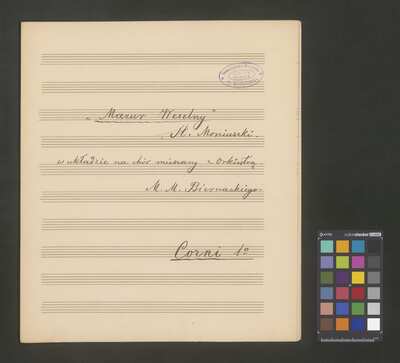 „Mazur Weselny"
St. Moniuszki.
w układzie na chór mieszany z Orkiestrą
M. M. Biernackiego.
Corni 1º